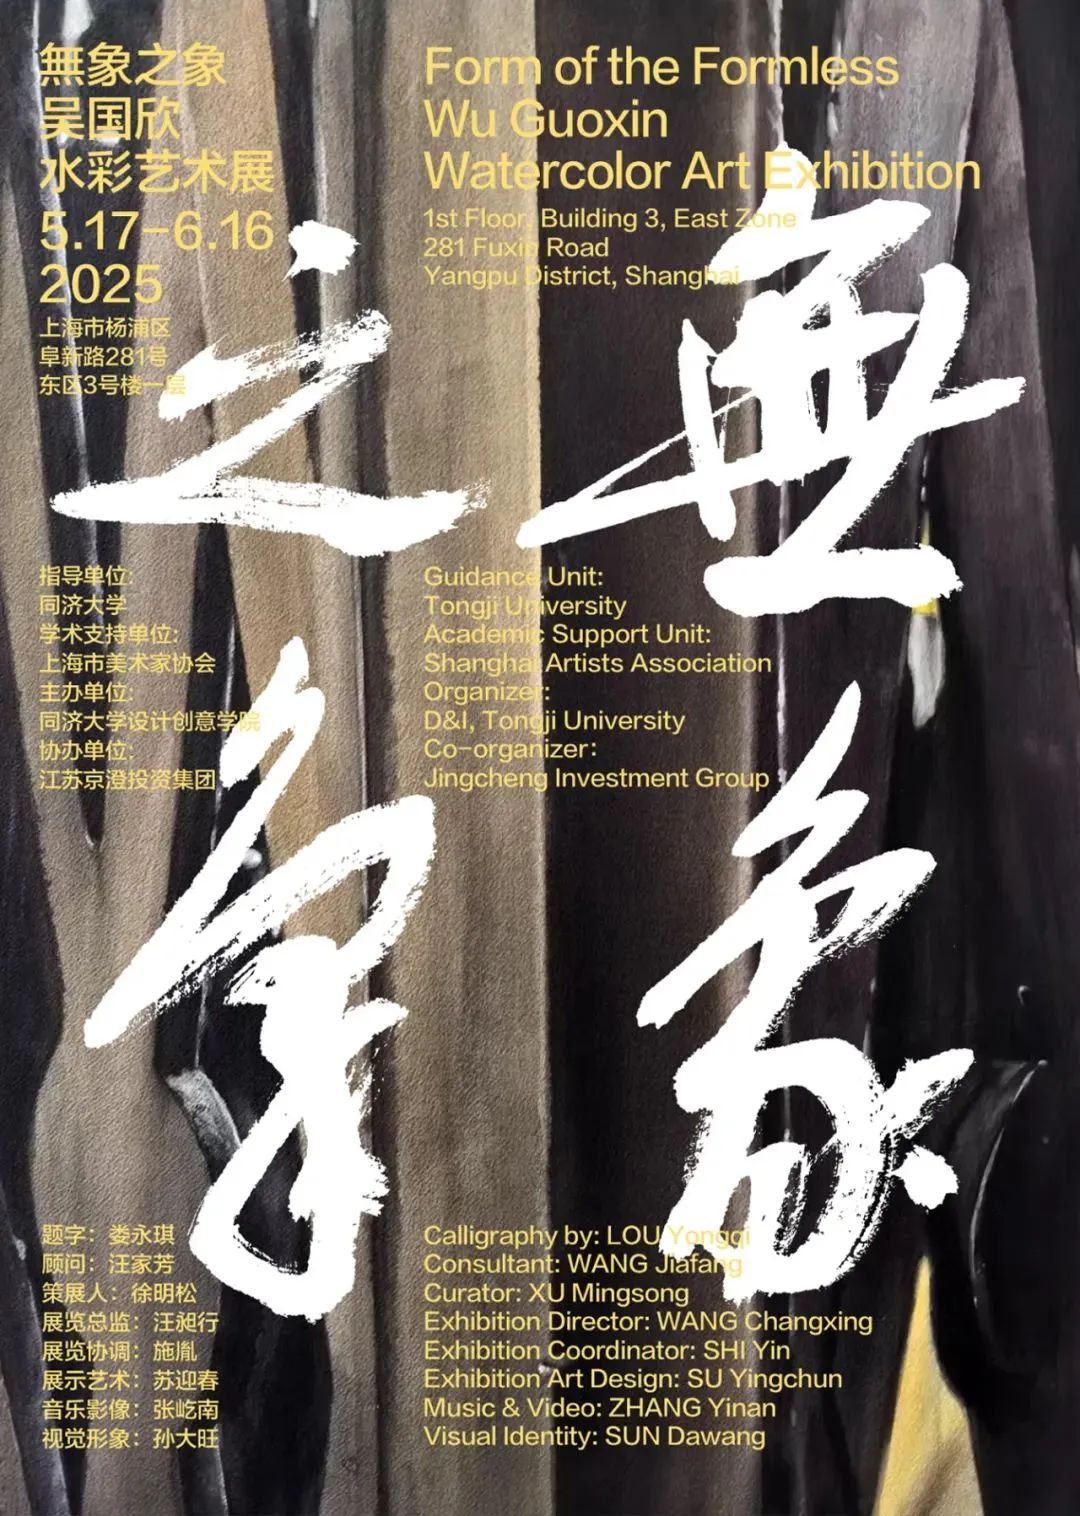 無象之象
吴国欣
水彩艺术展
5.17-6.16
2025
上海市杨浦区
阜新路281号
东区3号楼一层
Form of the Formless
Wu Guoxin
Watercolor Art Exhibition
1st Floor, Building 3, East Zone
281 Fuxin Road
Yangpu District, Shanghai
無象
之象
指导单位:
同济大学
学术支持单位:
上海市美术家协会
主办单位:
同济大学设计创意学院
协办单位:
江苏京澄投资集团
Guidance Unit:
Tongji University
Academic Support Unit:
Shanghai Artists Association
Organizer:
D&I, Tongji University
Co-organizer:
Jingcheng Investment Group
题字：娄永琪
顾问：汪家芳
策展人：徐明松
展览总监：汪昶行
展览协调：施胤
展示艺术：苏迎春
音乐影像：张屹南
视觉形象：孙大旺
Calligraphy by: LOU Yongqi
Consultant: WANG Jiafang
Curator: XU Mingsong
Exhibition Director: WANG Changxing
Exhibition Coordinator: SHI Yin
Exhibition Art Design: SU Yingchun
Music & Video: ZHANG Yinan
Visual Identity: SUN Dawang